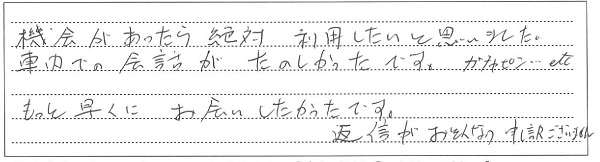 機会があったら絶対 利用したいと思いました。
車内での会話が たのしかったです。ガチャピン…etc
もっと早くに お会いしたかったです。
返信が おそくなり 申し訳ございません